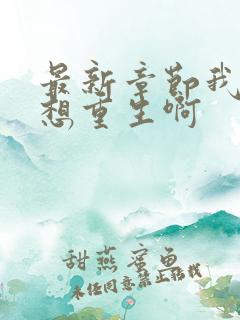 最新章节我
想重生啊
甜燕蜜鱼
未经同意禁止转载